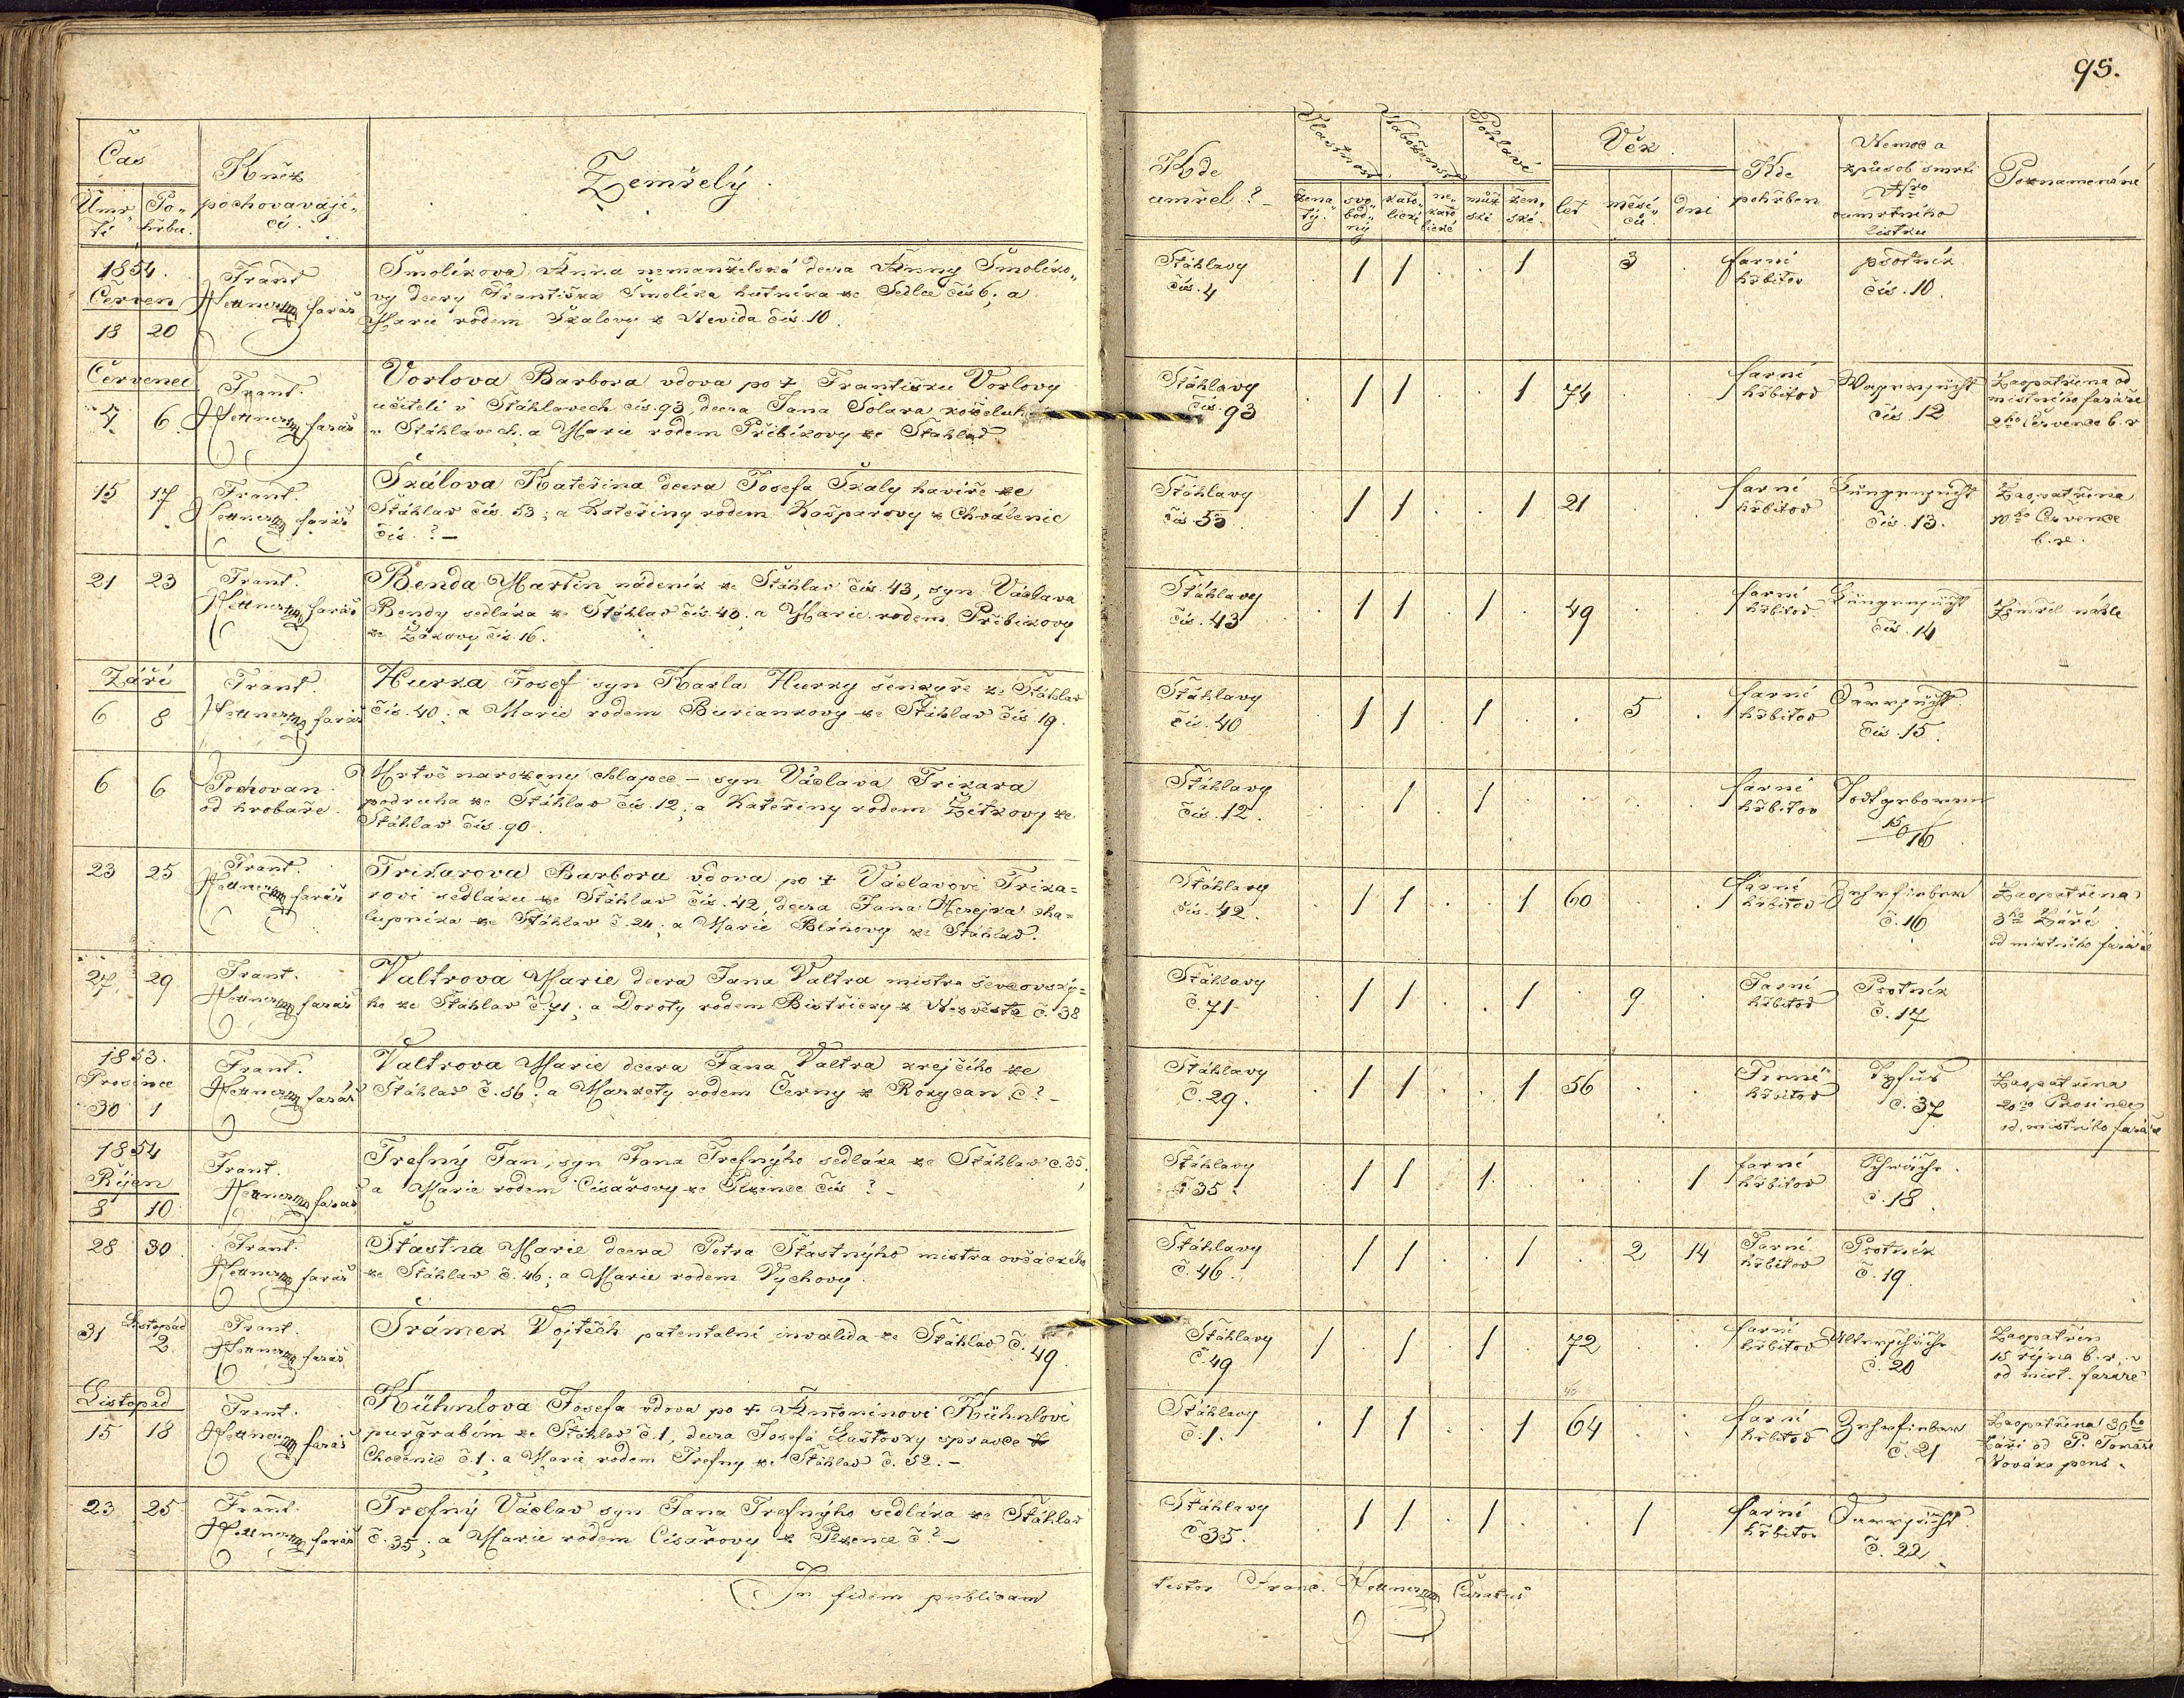 95.
Čas
Úmrtí
Pohřbu.
Kněz pochovavající.
Zemřelý.
Kde umřel?
žena„tý.
svo„bod„ný
kato„lické
ne„kato„lické
muž„ské
žen„ské
Věk
let
měsí„ců
dní
Kde pohřben
Nemoc a způsob smrti
Nro úmrtního lístku
Poznamenání
1854.
Červen
18 20
Frant
farář
Smolíkova Anna nemanželská dcera Anny Smolíko„
vy dcery Františka Smolíka hutníka ze Sedlce čís 6; a
Marie rodem Skalovy z Nevida čís. 10.
Štáhlavy
čís. 4
1 1 . . 1 3
farní
hřbitov
psotník
čís. 10.
Červenec
4 6
Frant.
farář
Vorlova Barbora vdova po † Františku Vorlovy
učiteli v Štáhlavech čís. 93, dcera Jana Solara
v Štáhlavech, a Marie rodem Přibíkovy ze Štáhlav
Štáhlavy
čís. 93
1 1 . . 1 74
farní
hřbitov
čís. 12
Zaopatřena od
místního faráře
2ho července b. r
15 17
Frant.
farář
Skálova Kateřina dcera Josefa Skaly havíře ze
Štáhlav čís. 53; a Kateřiny rodem Kašparovy z Chválenic
čís. ? –
Štáhlavy
čís 53.
1 1 . . 1 21
farní
hřbitov
Lungensucht
čís. 13.
Zaopatřena
10ho Července
b. r.
21 23
Frant.
farář
Benda Martin nádeník ze Štáhlav čís. 43, syn Václava
Bendy sedláka ze Štáhlav čís. 43; a Marie rodem Přibíkovy
ze Žákovy čís 16.
Štáhlavy
čís. 43
1 1 . 1 . 49
farní
hřbitov
Lungensucht
čís. 14
Zemřel náhle
Září
6 8
Frant.
farář
Hurka Josef syn Karla Hurky šenkýře ze Štáhlav
čís. 40; a Marie rodem Buriankovy ze Štáhlav čís. 19.
Štáhlavy
čís. 40
1 1 . 1 . . 5 .
farní
hřbitov
Darrsucht
čís. 15.
6 6
Pochovan
od hrobaře.
Mrtvě narozený chlapec – syn Václava Trikara
podruha ze Štáhlav čís. 12; a Kateřiny rodem Žitkovy ze
Štáhlav čís. 90.
Štáhlavy
čís. 12.
. . 1 . 1
farní
hřbitov
Todtgeboren
23 25
Frant.
farář
Trikarova Barbora vdova po † Václavovi Trika=
rovi sedláku ze Štáhlav čís. 42, dcera Jana cha=
lupníka ze Štáhlav č. 24; a Marie Bláhovy ze Štáhlav.
Štáhlavy
čís. 42.
1 1 . . 1 60
farní
hřbitov
Zehrfieber
č. 16
Zaopatřena
3ho Září
od místního faráře
27 29
Frant.
farář
Valtrova Marie dcera Jana Valtra mistra ševcovský=
ho ze Štáhlav č. 71; a Doroty rodem Bistřický z Nezvěstic č. 38
Štáhlavy
č. 71
1 1 . . 1 . 9
Farní
hřbitov
Psotník
č. 17
1853.
Prosince
30 1
Frant.
farář
Valtrova Marie dcera Jana Valtra krejčího ze
Štáhlav č. 56; a Markety rodem Černy z Rokycan č? –
Štáhlavy
č. 29.
1 1 . . 1 56
Farní
hřbitov
Tyfus
č. 37
Zaopatřena
Prosince
od místního faráře
1854
Říjen
8 10
Frant.
farář
Trefný Jan, syn Jana Trefnýho sedláka ze Štáhlav č. 35;
a Marie rodem Císařovy ze Plzence čís ? –
Štáhlavy
č. 35.
1 1 . 1 . . . 1
farní
hřbitov
Schwäche
č. 18.
28 30
Frant.
farář
Šťastná Marie dcera Petra Šťastnýho mistra ovčáckého
ze Štáhlav č. 46; a Marie rodem Vychovy.
Štáhlavy
č. 46.
1 1 . . 1 . 2 14
Farní
hřbitov
Psotník
č. 19.
31 Listopad 2
Frant.
farář
Šrámek Vojtěch patentalní invalida ze Štáhlav č. 49.
Štáhlavy
č. 49
1 . 1 . 1 . 72
farní
hřbitov
Altersschwäche
č. 20
Zaopatřen
15 října b. r.
od míst. faráře
Listopad
15 18
Frant.
farář
Kühnlova Josefa vdova po † Antonínovi Kühnlovi
purgrabím ze Štáhlav č. 1, dcera Josefa Laštovky správce z
Chocenic č. 1; a Marie rodem Trefny ze Štáhlav č. 52. –
Štáhlavy
č. 1.
1 1 . . 1 64
farní
hřbitov
Zehrfieber
č. 21
Zaopatřena 30ho
Září od P. Tomáše
Nováka pens.
23 25
Frant.
farář
Trefný Václav syn Jana Trefnýho sedláka ze Štáhlav
č. 35; a Marie rodem Císařovy z Plzence č? –
Štáhlavy
č. 35.
1 1 . 1 . . 1
farní
hřbitov
Darrsucht
č. 22
In fidem publicam
testor Franc. Curatus